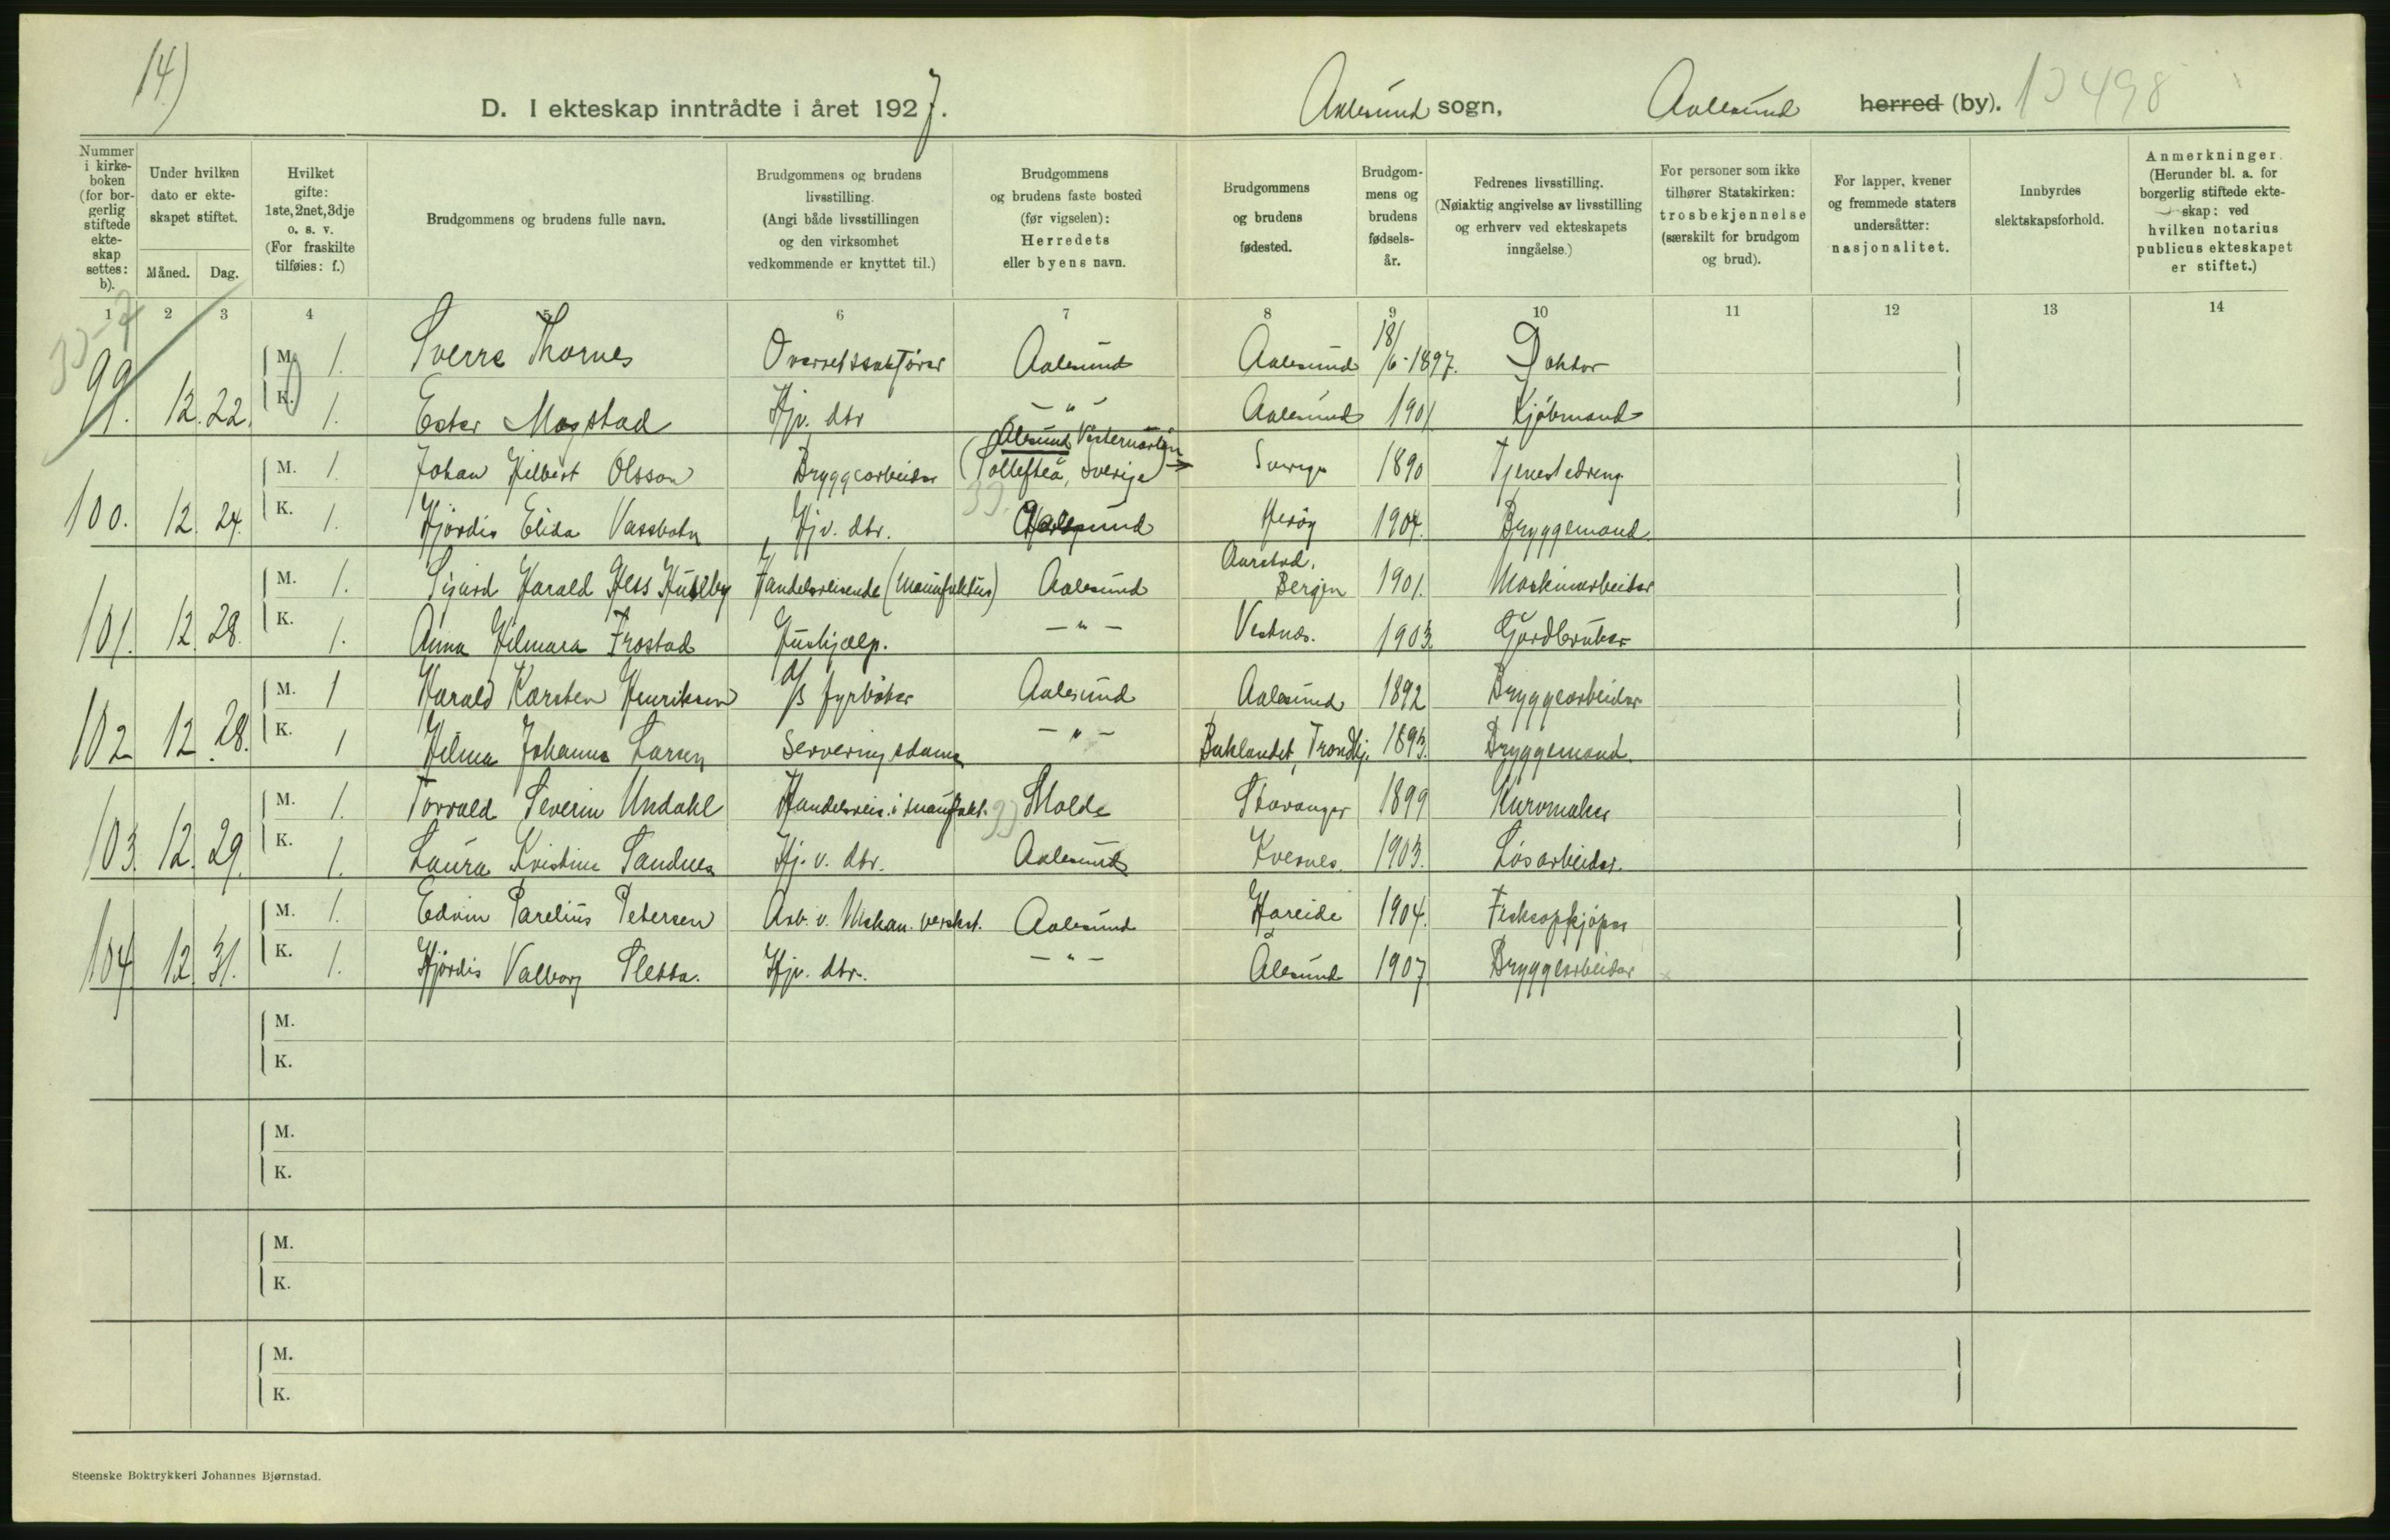 14)
D. I ekteskap inntrådte i året 1927.
Aalesund sogn, Aalesund herred (by). 498
Nummer i kirkeboken (for borgerlig stiftede ekteskap settes: b).
Under hvilken dato er ekteskapet stiftet.
Måned. Dag.
Hvilket gifte: 1ste, 2net, 3dje o. s. v. (For fraskilte tilføies: f.)
Brudgommens og brudens fulle navn.
Brudgommens og brudens livsstilling. (Angi både livsstillingen og den virksomhet vedkommende er knyttet til.)
Brudgommens og brudens faste bosted (før vigselen): Herredets eller byens navn.
Brudgommens og brudens fødested.
Brudgommens og brudens fødselsår.
Fedrenes livsstilling. (Nøiaktig angivelse av livsstilling og erhverv ved ekteskapets inngåelse.)
For personer som ikke tilhører Statskirken: trosbekjennelse (særskilt for brudgom og brud).
For lapper, kvener og fremmede staters undersåtter: nasjonalitet.
Innbyrdes slektskapsforhold.
Anmerkninger. (Herunder bl. a. for borgerlig stiftede ekteskap: ved hvilken notarius publicus ekteskapet er stiftet.)
1 2 3 4 5 6 7 8 9 10 11 12 13 14
M. 1. Sverre Thornes Overretssakfører Aalesund Aalesund 18/6-1897. Doktor
99. 12. 22. K. 1. Ester Magstad Hjv. dtr — " — Aalesund 1901 Kjøbmand
Alesund
M. 1. Johan Hilbert Olsson Bryggearbeider (Sollefteå, Sverige) Sverige 1890 Tjenestedreng
100. 12. 24. K. 1. Hjørdis Elida Vassbotn Hjv. dtr. Aalesund Herøy 1904. Bryggemand
M. 1. Sigurd Harald Hess Huseby Handelsreisende (Manufaktur) Aalesund Aarstad, Bergen 1901. Maskinarbeider
101. 12. 28. K. 1. Anna Hilmara Frostad Hushjælp. — " — Vestnes. 1903. Gardbruker
M. 1 Harald Karsten Henriksen fyrbøter Aalesund Aalesund 1892 Bryggearbeider
102 12. 28. K. 1 Hilma Johanna Larsen Serveringsdame — " — Baklandet, Trondhj. 1893. Bryggemand.
M. 1. Torvald Severin Undahl Handelsreis. i manufakt. Molde Stavanger 1899 Kurvmaker
103. 12. 29. K. 1. Laura Kristine Sandnes Hj. v. dtr. Aalesund Kvernes. 1903. Løsarbeider.
M. 1. Edvin Parelius Petersen Arb. v. Mekan. verkst. Aalesund Hareide 1904. Fiskeopkjøper
104. 12. 31. K. 1. Hjørdis Valborg Sletta. Hjv. dtr. — " — Ålesund 1907 Bryggearbeider
M.
K.
M.
K.
M.
K.
M.
K.
Steenske Boktrykkeri Johannes Bjørnstad.